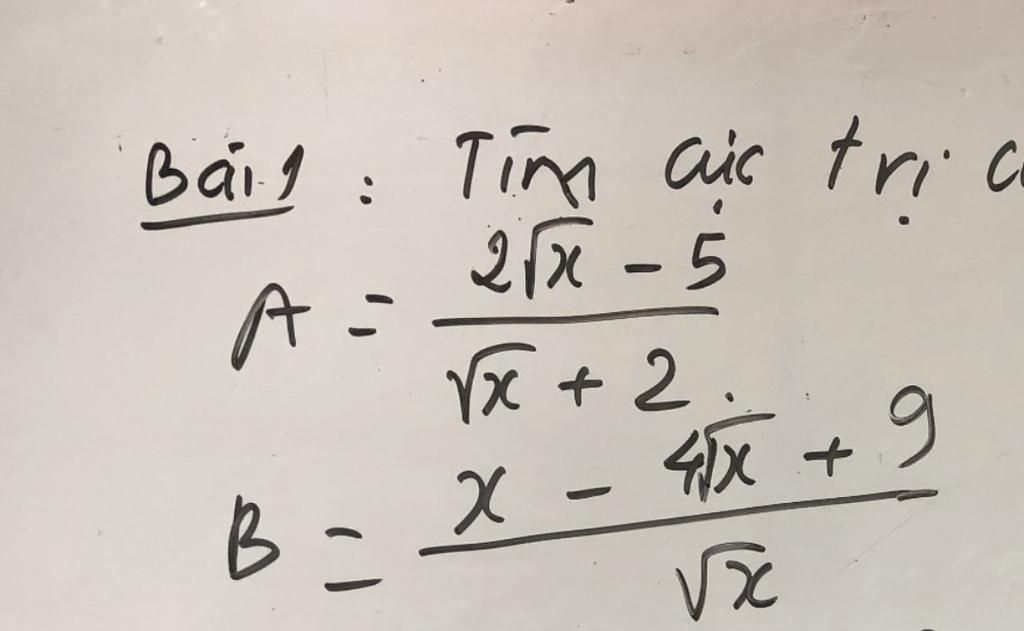 Bài 1 : Tìm cực trị
A = (2√x - 5) / (√x + 2)
B = (x - 4√x + 9) / √x